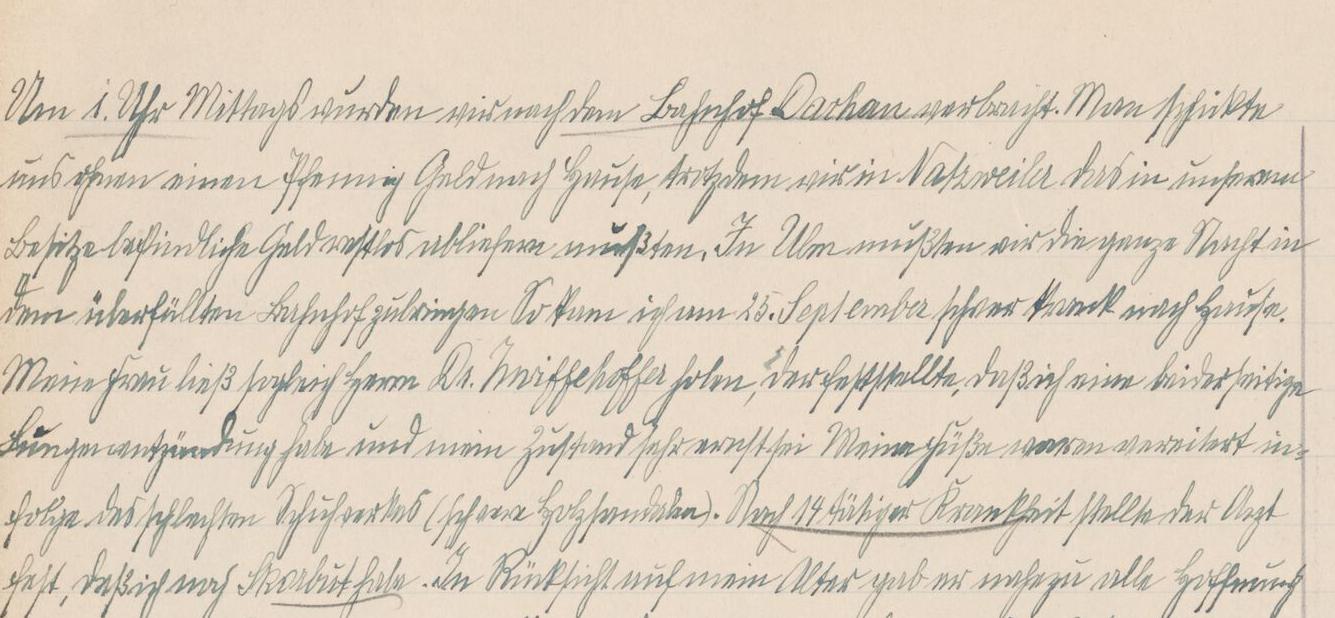 Um 1. Uhr Mittags wurden wir nach dem Bahnhof Dachau verbracht. Man schickte
uns ohnen einen Pfennig Geld nach Hause, trotzdem wir in Natzweiler das in unserem
Besitze befindliche Geld restlos abliefern mußten. In Ulm mußten wir die ganze Nacht in
dem überfüllten Bahnhof zubringen So kam ich am 25. September schwer krank nach Hause.
Meine Frau ließ sogleich Herrn Dr. holen, der feststellte, daß ich eine beiderseitige
Lungenentzündung habe und mein Zustand sehr ernst sei Meine Füße waren vereitert in-
folge des schlechten Schuhwerkes (schwere Holzsandalen). Nach 14 tätiger Krankheit stellte der Arzt
fest, daß ich noch Skorbut habe. In Rücksicht auf mein Alter gab er nahezu alle Hoffnung